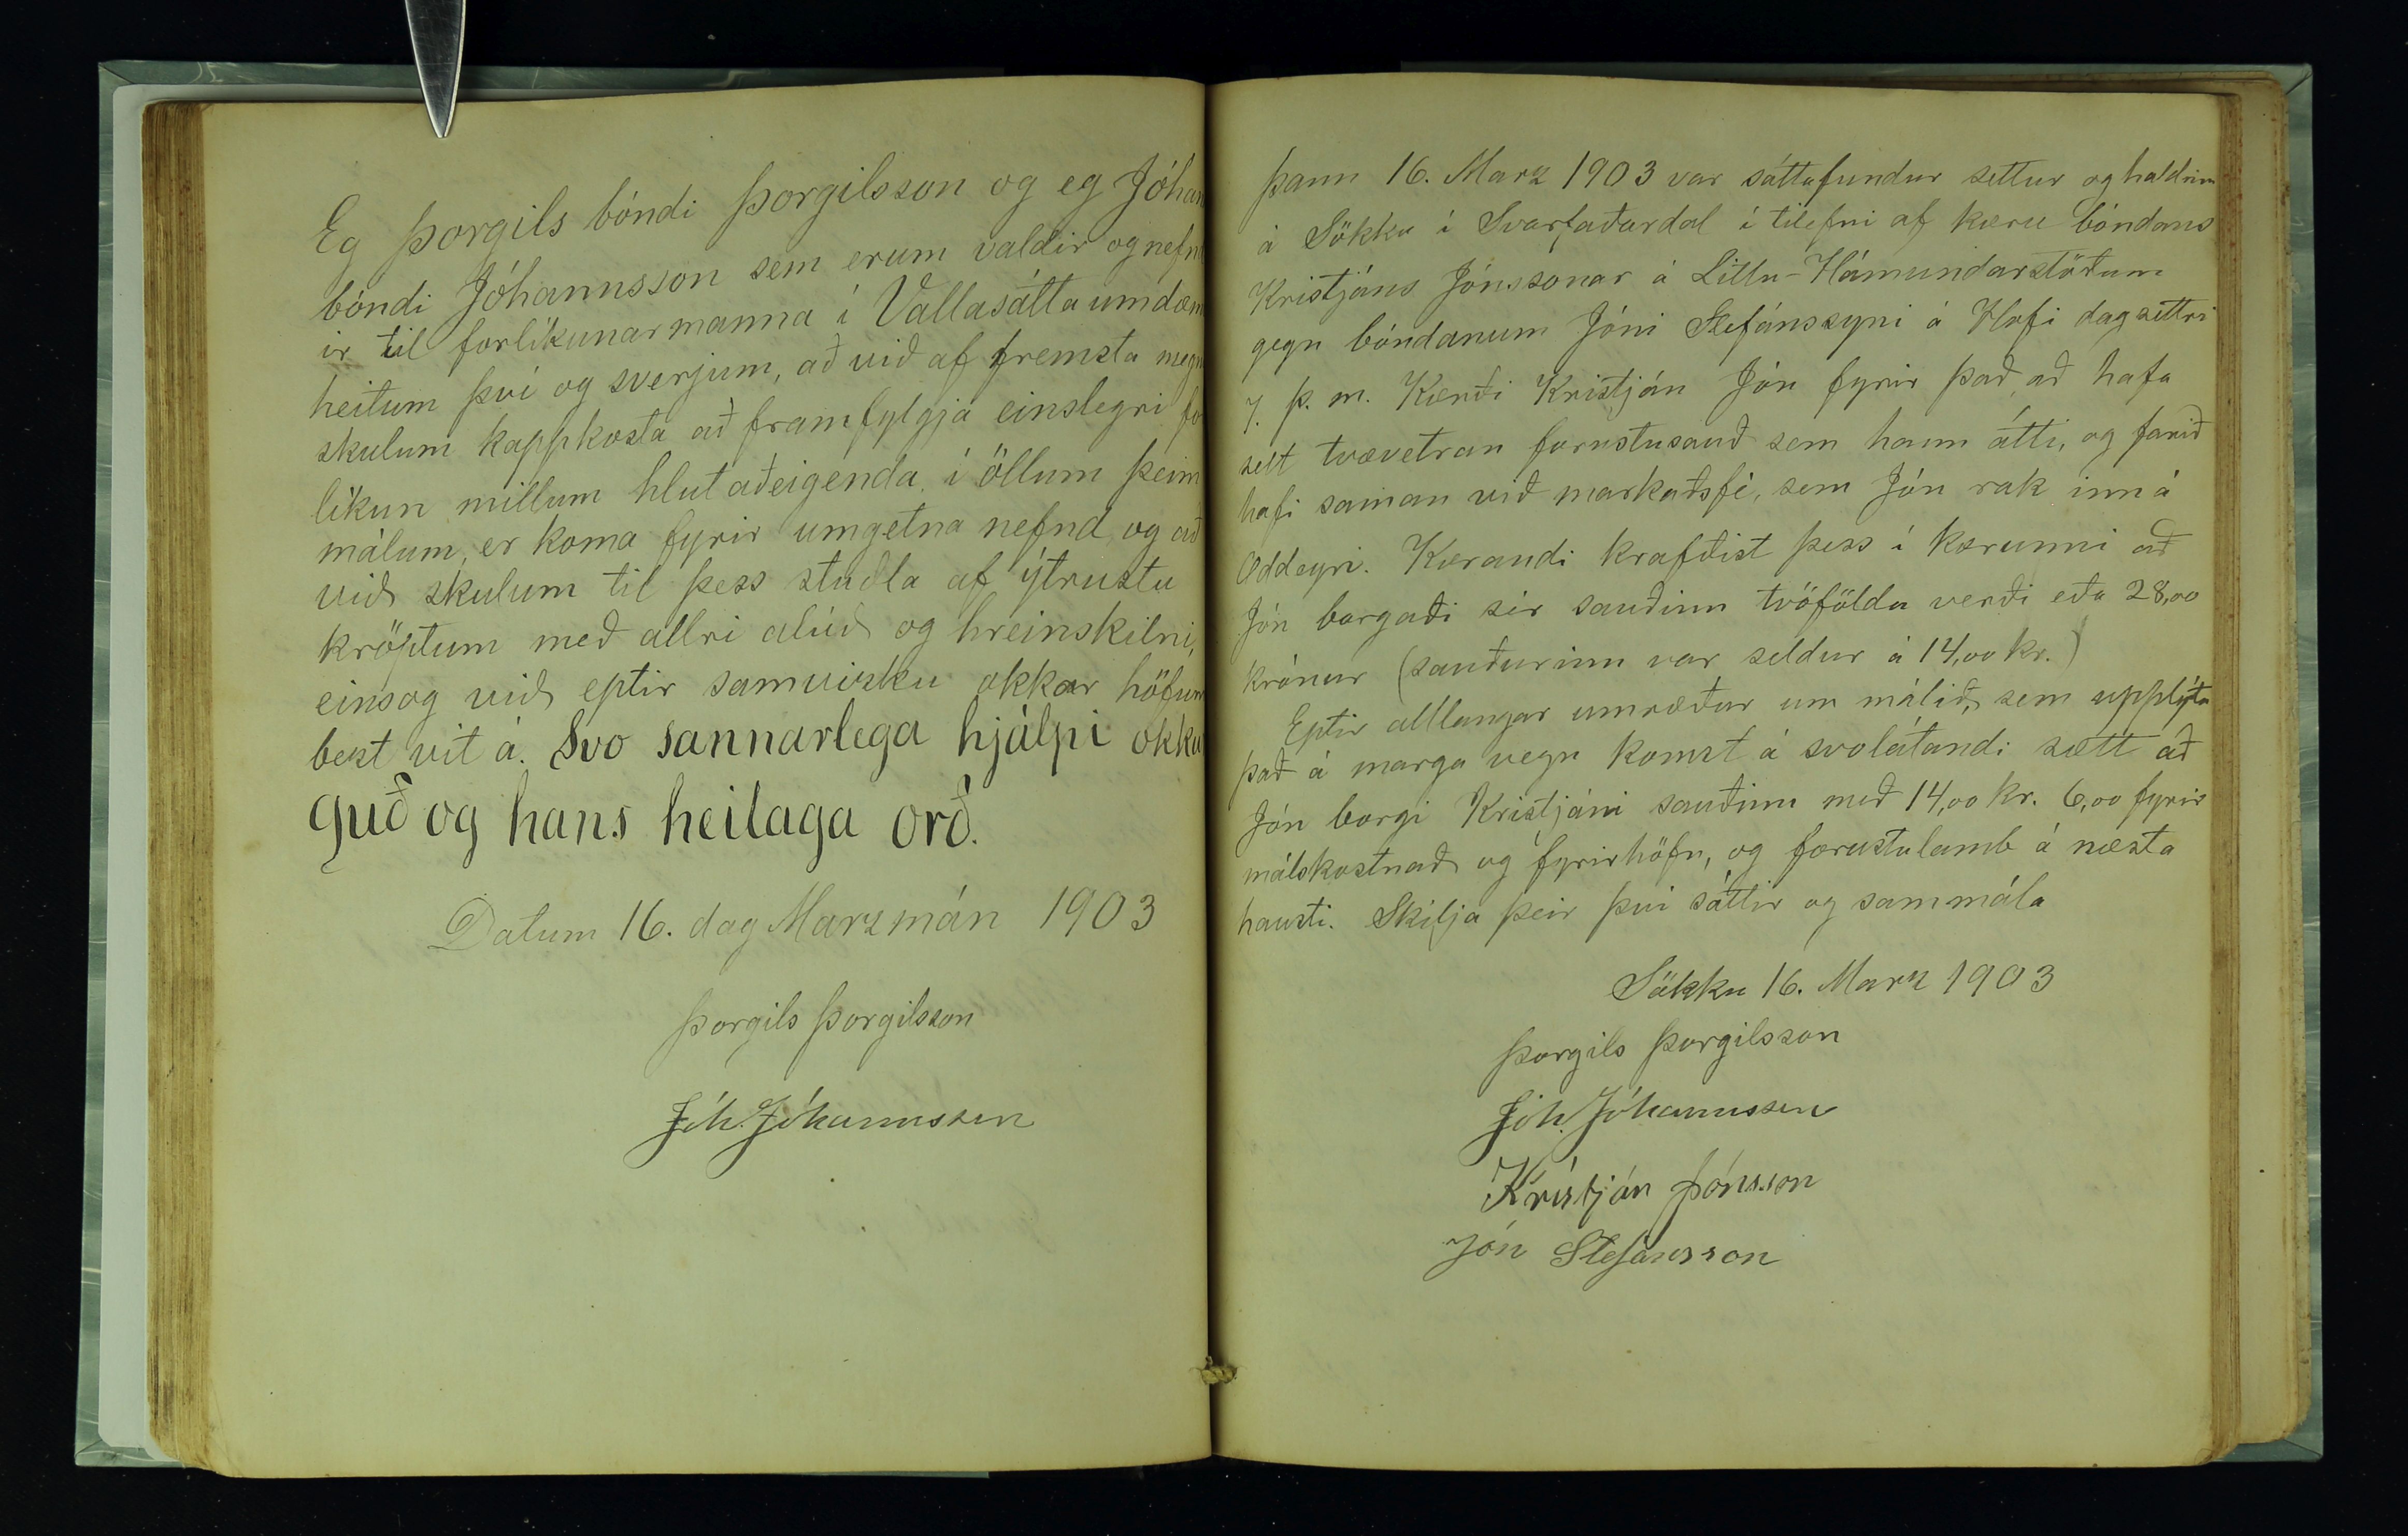 Eg Þorgils bóndi Þorgilsson og eg Jóhan
bóndi Jóhannsson sem erum valdir og nefn
ir til forlíkunarmanna í Vallasátta umdæm
heitum því og sverjum, að við af fremsta megn
skulum kappkosta að framfylgja einslegri for
líkun millum hlutaðeigenda í öllum þeim
málum, er koma fyrir umgetna nefnd, og að
við skulum til þess stuðla af ýtrustu
kröptum með allri alúð og hreinskilni,
einsog við eptir samvizku okkar höfum
bezt vit á. Svo sannarlega hjálpi okku
guð og hans heilaga orð.
Datum 16. dag Marzmán 1903
Þorgils Þorgilsson
Jóh. Jóhannsson
Þann 16. Marz 1903 var sáttafundur settur og haldinn
á Sökku í Svarfaðardal í tilefni af kæru bóndans
Kristjáns Jónssonar á Litlu-Hámundarstöðum
gegn bóndanum Jóni Stefánssyni á Hofi dagsettri
7. þ. m. Kærði Kristján Jón fyrir það að hafa
selt tvævetran forustusauð sem hann átti, og farið
hafi saman við markaðsfé, sem Jón rak inn á
Oddeyri. Kærandi krafðist þess í kærunni að
Jón borgaði sér sauðinn tvöföldu verði eða 28,00
krónur (sauðurinn var seldur á 14,00 kr.)
Eptir alllangar umræður um málið, sem upplýstu
það á marga vegu komst á svolátandi sætt að
Jón borgi Kristjáni sauðinn með 14,00 kr. 6,00 fyrir
málskostnað og fyrirhöfn, og forustulamb á næsta
hausti. Skilja þeir því sáttir og sammála
Sökku 16. Marz 1903
Þorgils Þorgilsson
Jóh. Jóhannsson
Kristján Jónsson
Jón Stefansson